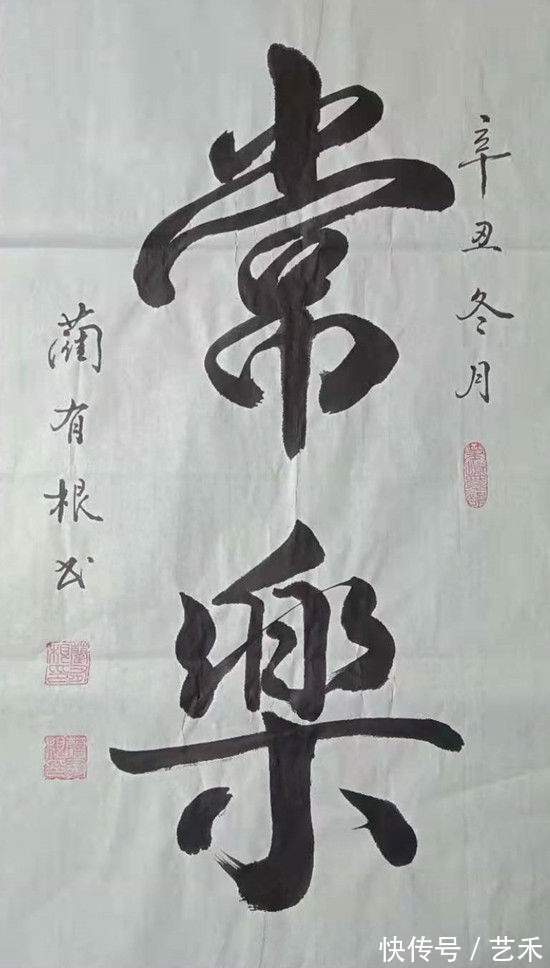 辛丑冬月
常樂
藺有根书
快传号/艺禾